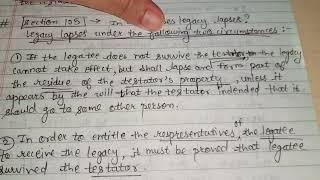 # Section 105 → In
es legacy lapses?
Legacy lapses under the following two circumstances :-
① If the legatee does not survive the testator the legacy
cannot take effect, but shall lapse and form part of
the residue of the testator's property, unless it
appears by the will that the testator indended that it
should go to some other person.
② In order to entitle the respresentatives of the legatee
to receive the legacy, it must be proved that legatee
survived the testator.